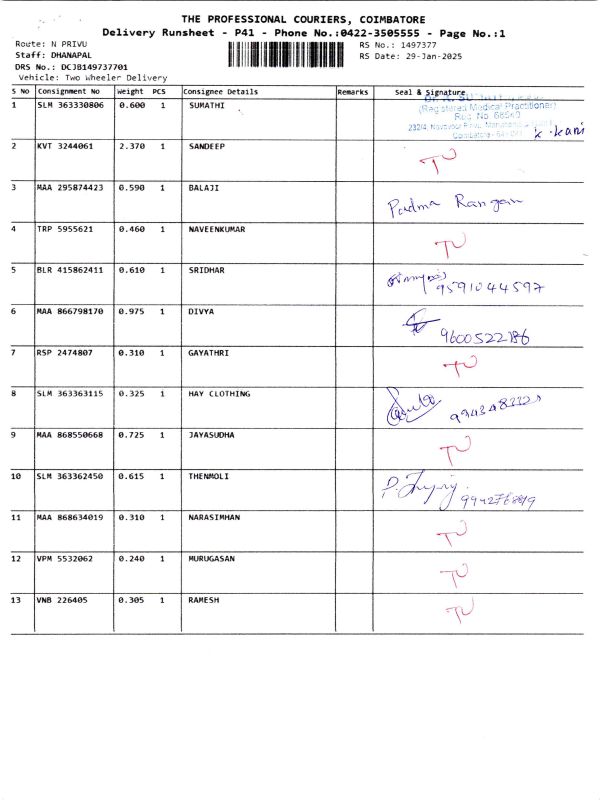 THE PROFESSIONAL COURIERS, COIMBATORE
Delivery Runsheet - P41 - Phone No.:0422-3505555 - Page No.:1
Route: N PRIVU RS No.: 1497377
Staff: DHANAPAL RS Date: 29-Jan-2025
DRS No.: DCJB149737701
Vehicle: Two Wheeler Delivery
S No Consignment No Weight PCS Consignee Details Remarks Seal & Signature
1 SLM 363330806 0.600 1 SUMATHI
(Registered Medical Practitioner)
Reg. No. 68540
Coimbatore - 641 047 k. kani
2 KVT 3244061 2.370 1 SANDEEP TU
3 MAA 295874423 0.590 1 BALAJI Padma Rangan
4 TRP 5955621 0.460 1 NAVEENKUMAR TU
5 BLR 415862411 0.610 1 SRIDHAR 9591044597
6 MAA 866798170 0.975 1 DIVYA 9600522186
7 RSP 2474807 0.310 1 GAYATHRI TU
8 SLM 363363115 0.325 1 HAY CLOTHING
9 MAA 868550668 0.725 1 JAYASUDHA TU
10 SLM 363362450 0.615 1 THENMOLI
11 MAA 868634019 0.310 1 NARASIMHAN TU
12 VPM 5532062 0.240 1 MURUGASAN TU
13 VNB 226405 0.305 1 RAMESH TU